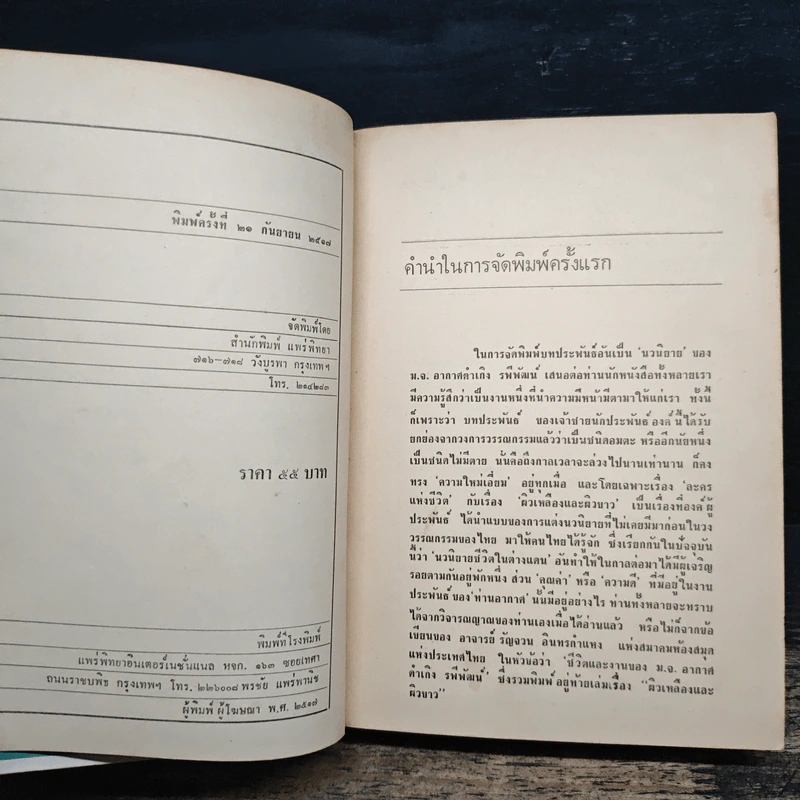 พิมพ์ครั้งที่ ๒๑ กันยายน ๒๕๑๗
จัดพิมพ์โดย
สำนักพิมพ์ แพร่พิทยา
๗๑๖-๗๑๘ วังบูรพา กรุงเทพฯ
โทร. ๒๑๔๒๘๓
ราคา ๕๕ บาท
พิมพ์ที่โรงพิมพ์
แพร่พิทยาอินเตอร์เนชั่นแนล หจก. ๑๖๓ ซอยเทศา
ถนนราชบพิธ กรุงเทพฯ โทร. ๒๒๖๐๐๘ พรชัย แพร่พานิช
ผู้พิมพ์ ผู้โฆษณา พ.ศ. ๒๕๑๗
คำนำในการจัดพิมพ์ครั้งแรก
ในการจัดพิมพ์บทประพันธ์อันเป็น 'นวนิยาย' ของ
ม.จ. อากาศดำเกิง รพีพัฒน์ เสนอต่อท่านนักหนังสือทั้งหลายเรา
มีความรู้สึกว่าเป็นงานหนึ่งที่นำความมีหน้ามีตามาให้แก่เรา ทั้งนี้
ก็เพราะว่า บทประพันธ์ ของเจ้าชายนักประพันธ์ องค์ นี้ได้รับ
ยกย่องจากวงการวรรณกรรมแล้วว่าเป็นชนิดอมตะ หรืออีกนัยหนึ่ง
เป็นชนิดไม่มีตาย นั่นคือถึงกาลเวลาจะล่วงไปนานเท่านาน ก็คง
ทรง 'ความใหม่เอี่ยม' อยู่ทุกเมื่อ และโดยเฉพาะเรื่อง 'ละคร
แห่งชีวิต' กับเรื่อง 'ผิวเหลืองและผิวขาว' เป็นเรื่องที่องค์ ผู้
ประพันธ์ ได้นำแบบของการแต่งนวนิยายที่ไม่เคยมีมาก่อนในวง
วรรณกรรมของไทย มาให้คนไทยได้รู้จัก ซึ่งเรียกกันในปัจจุบัน
นี้ว่า 'นวนิยายชีวิตในต่างแดน' อันทำให้ในกาลต่อมาได้มีผู้เจริญ
รอยตามกันอยู่พักหนึ่ง ส่วน 'คุณค่า' หรือ 'ความดี' ที่มีอยู่ในงาน
ประพันธ์ ของ 'ท่านอากาศ' นั้นมีอยู่อย่างไร ท่านทั้งหลายจะทราบ
ได้จากวิจารณญาณของท่านเองเมื่อได้อ่านแล้ว หรือไม่ก็จากข้อ
เขียนของ อาจารย์ รัญจวน อินทรกำแหง แห่งสมาคมห้องสมุด
แห่งประเทศไทย ในหัวข้อว่า 'ชีวิตและงานของ ม.จ. อากาศ
ดำเกิง รพีพัฒน์' ซึ่งรวมพิมพ์ อยู่ท้ายเล่มเรื่อง "ผิวเหลืองและ
ผิวขาว"